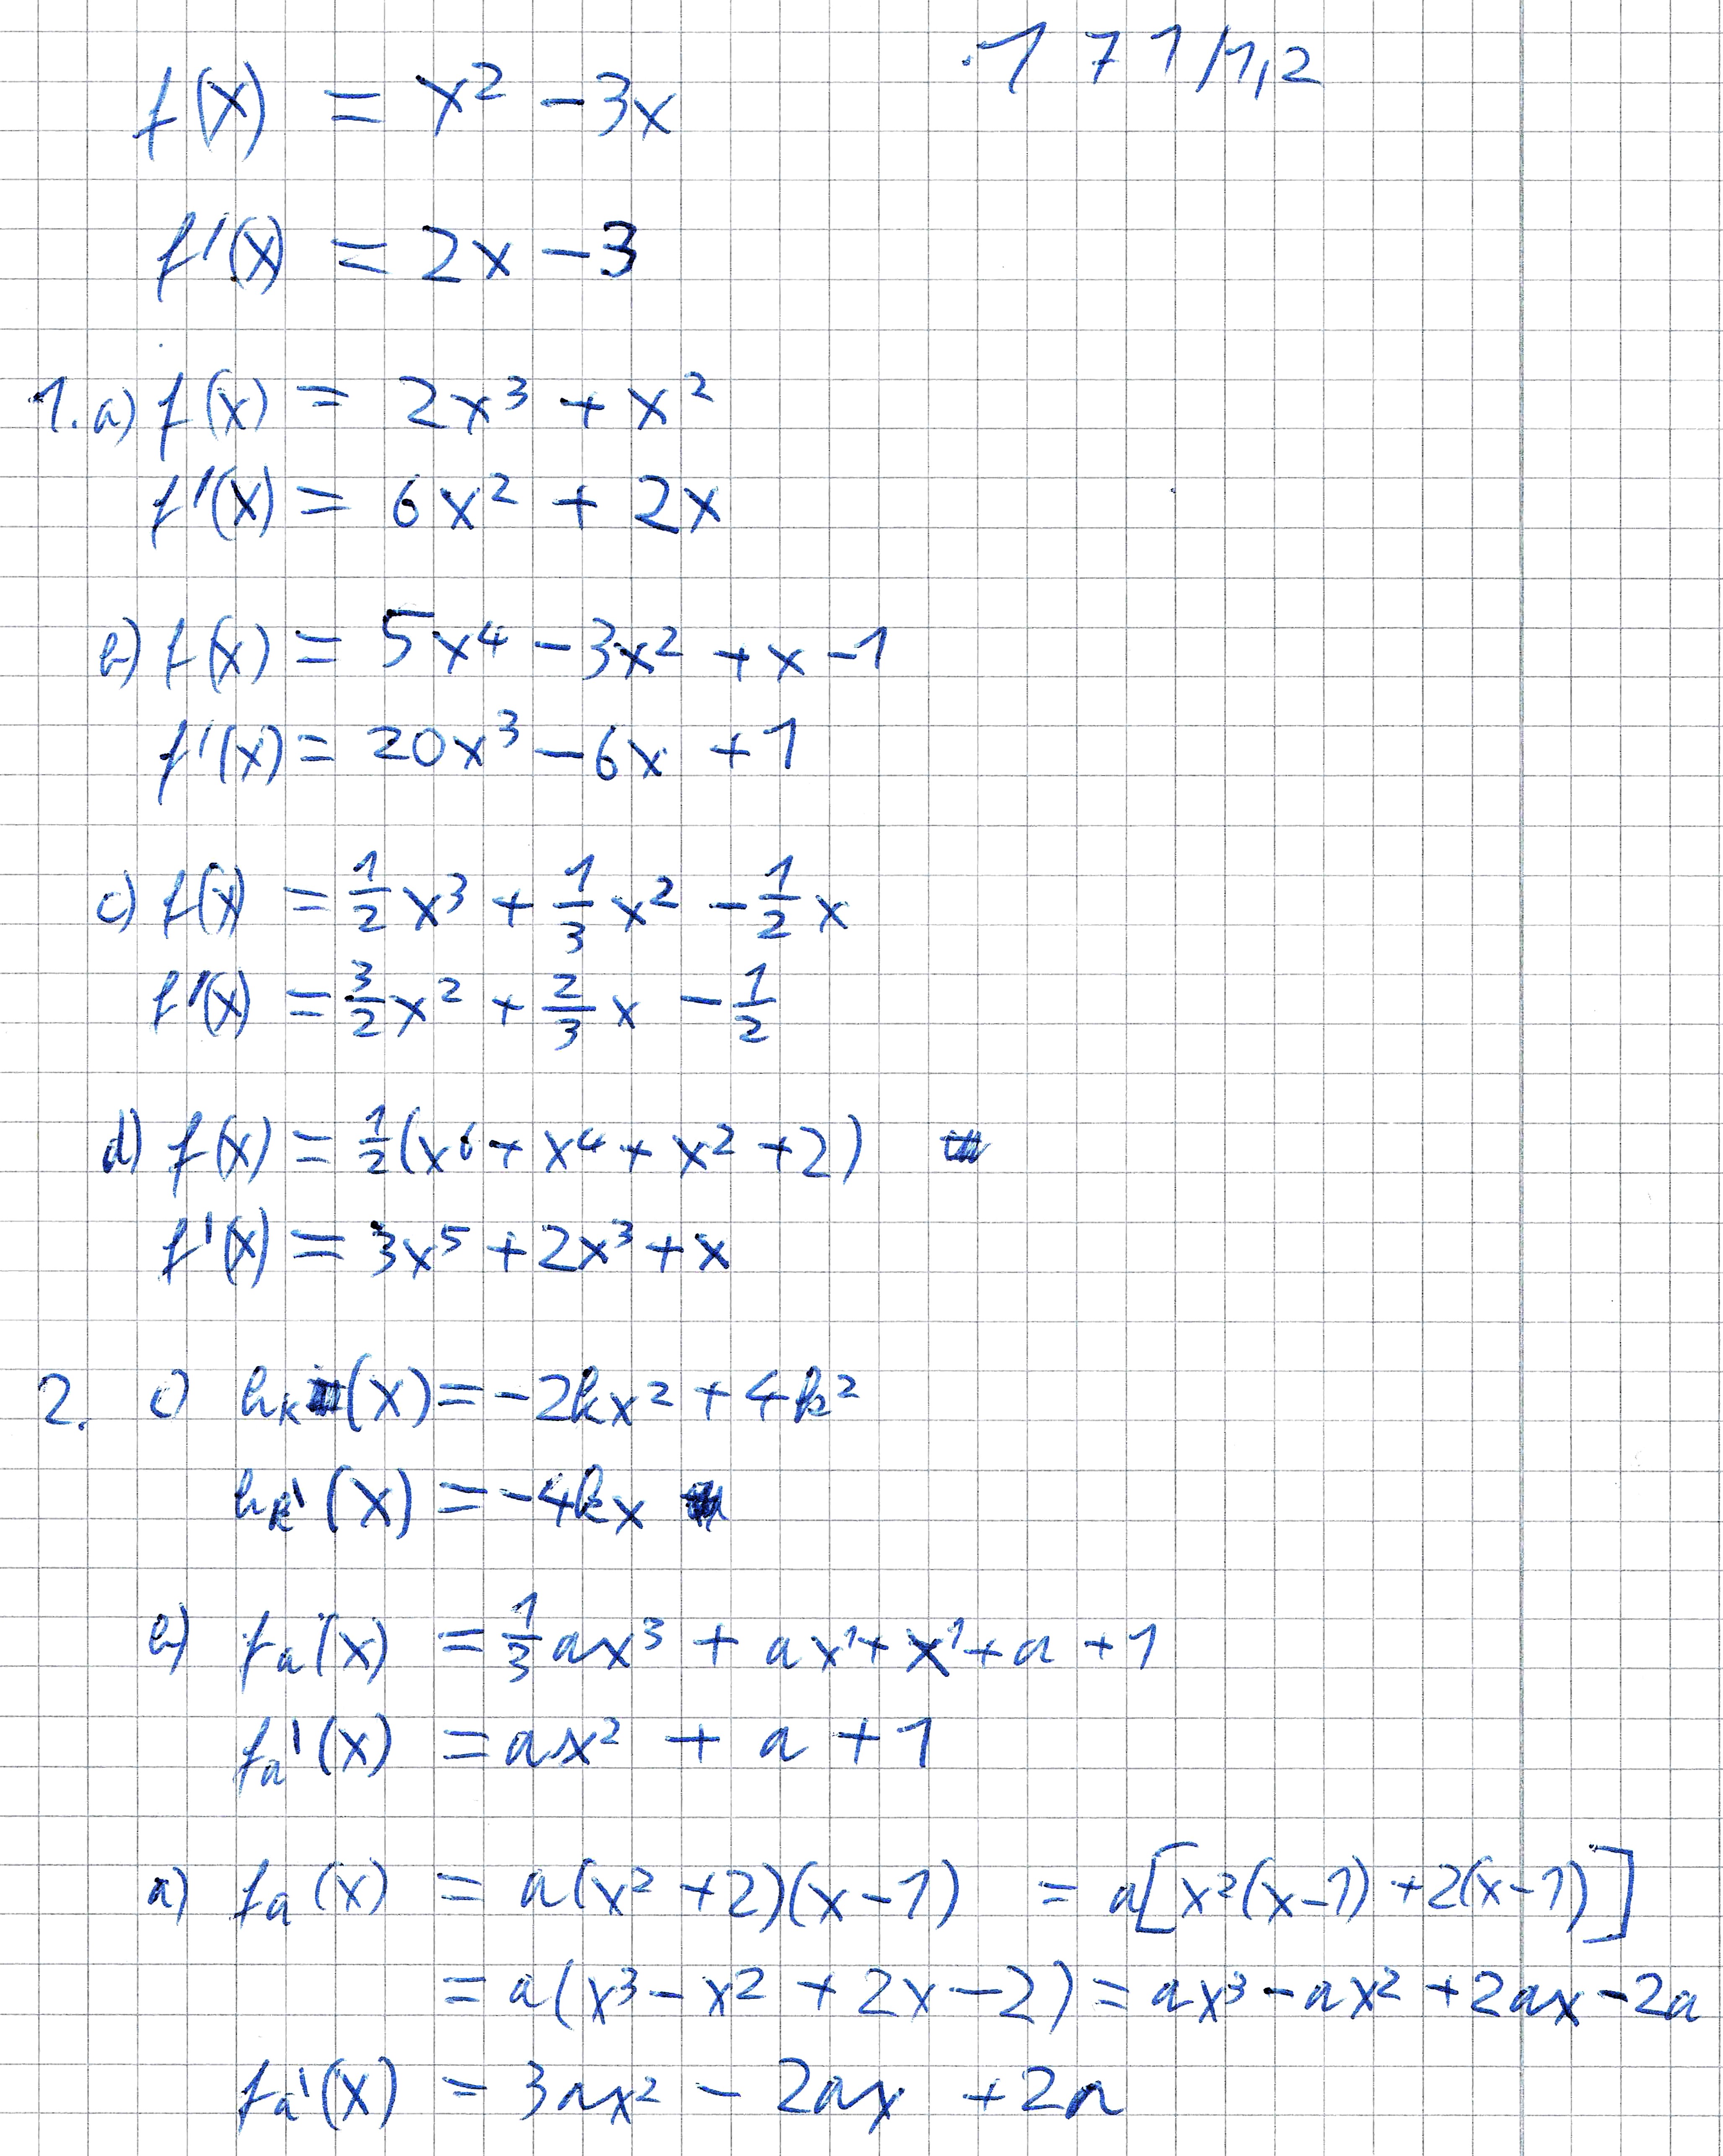 171/1,2
f(x) = x² - 3x
f'(x) = 2x - 3
1. a) f(x) = 2x³ + x²
f'(x) = 6x² + 2x
b) f(x) = 5x⁴ - 3x² + x - 1
f'(x) = 20x³ - 6x + 1
c) f(x) = 1/2 x³ + 1/3 x² - 1/2 x
f'(x) = 3/2 x² + 2/3 x - 1/2
d) f(x) = 1/2 (x⁶ + x⁴ + x² + 2)
f'(x) = 3x⁵ + 2x³ + x
2. c) hₖ(x) = -2kx² + 4k²
hₖ'(x) = -4kx
b) fₐ(x) = 1/3 ax³ + ax¹ + x¹ + a + 1
fₐ'(x) = ax² + a + 1
a) fₐ(x) = a(x² + 2)(x - 1) = a[x²(x-1) + 2(x-1)]
= a(x³ - x² + 2x - 2) = ax³ - ax² + 2ax - 2a
fₐ'(x) = 3ax² - 2ax + 2a